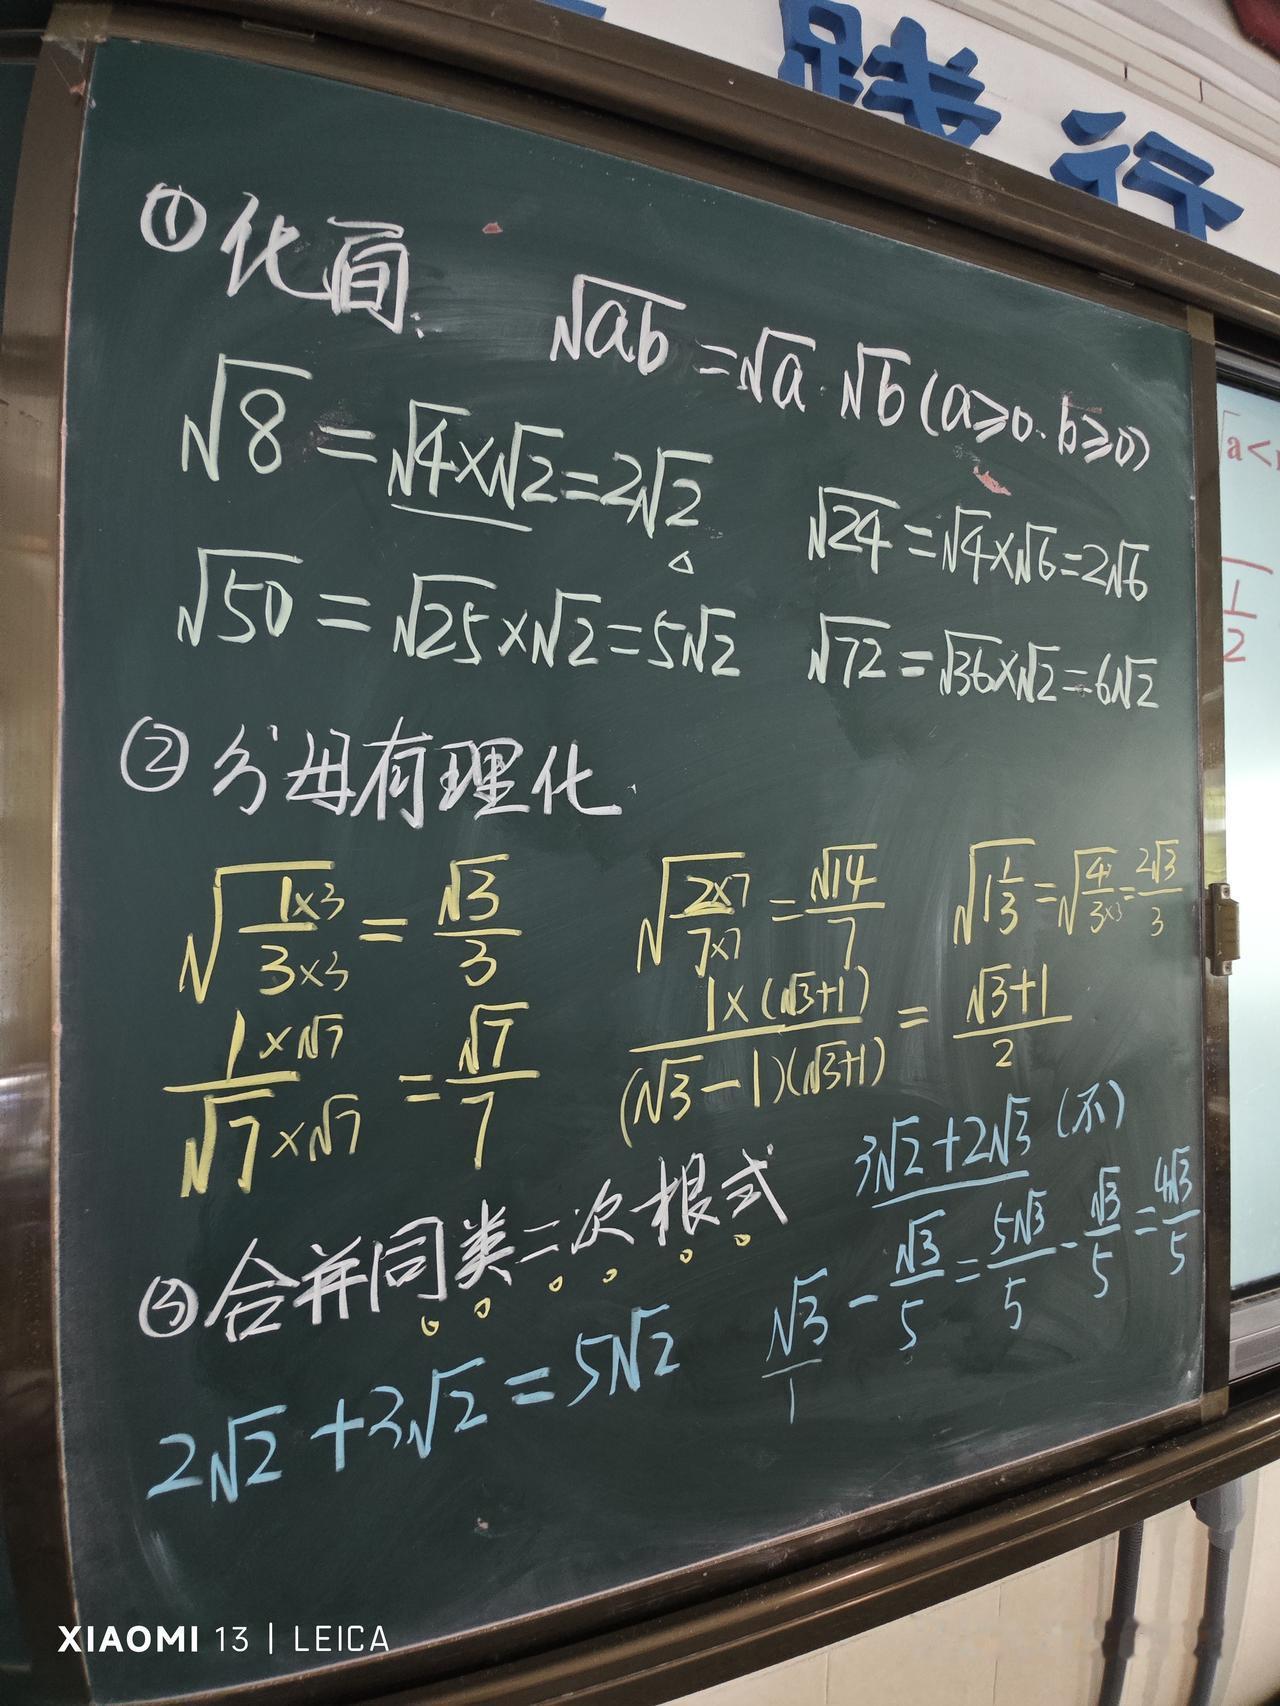 践行
①化简:
√ab = √a · √b (a≥0. b≥0)
√8 = √4×√2 = 2√2
√24 = √4×√6 = 2√6
√50 = √25×√2 = 5√2
√72 = √36×√2 = 6√2
②分母有理化.
√(1×3/3×3) = √3/3
√(2×7/7×7) = √14/7
√(1 1/3) = √(4/3×3) = 2√3/3
1×√7/√7×√7 = √7/7
1×(√3+1)/(√3-1)(√3+1) = √3+1/2
③合并同类二次根式
3√2+2√3 (不)
2√2+3√2 = 5√2
√3/1 - √3/5 = 5√3/5 - √3/5 = 4√3/5
1/2
XIAOMI 13 | LEICA